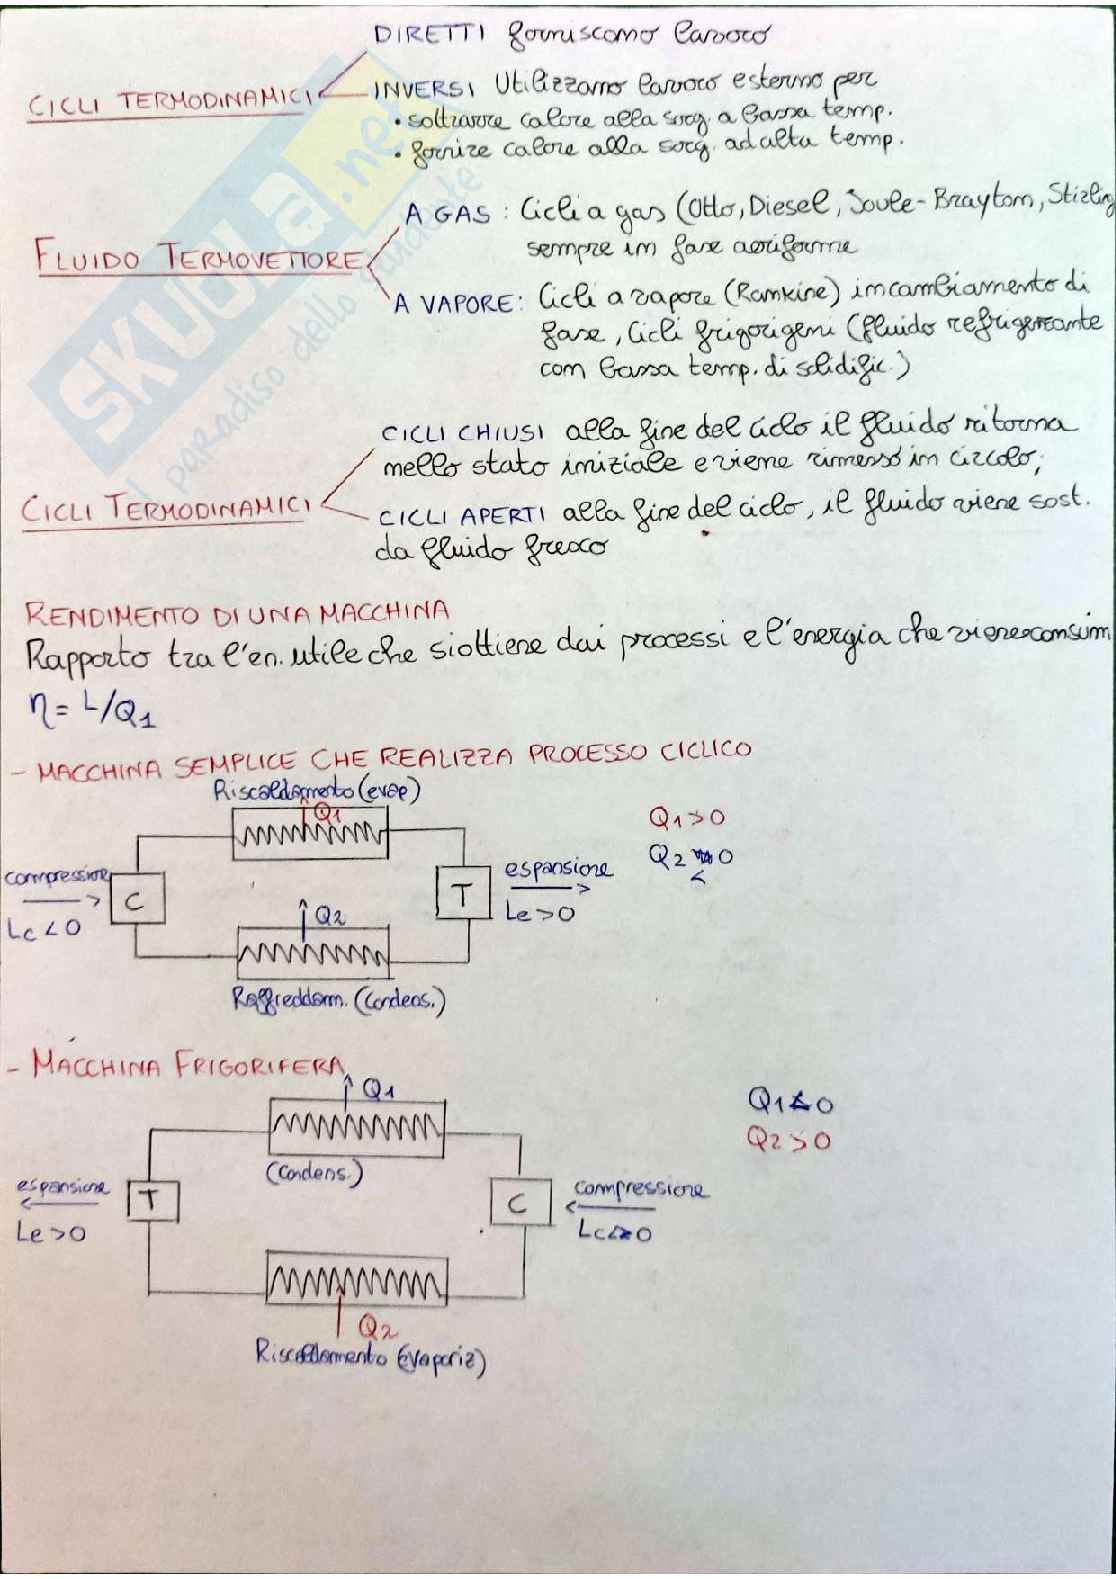 DIRETTI forniscono lavoro
CICLI TERMODINAMICI
INVERSI Utilizzano lavoro esterno per
• sottrarre calore alla sorg. a bassa temp.
• fornire calore alla sorg. ad alta temp.
A GAS: Cicli a gas (Otto, Diesel, Joule-Brayton, Stirling
sempre in fase aeriforme
FLUIDO TERMOVETTORE
A VAPORE: Cicli a vapore (Rankine) in cambiamento di
fase, Cicli frigorigeni (fluido refrigerante
con bassa temp. di solidific.)
CICLI CHIUSI alla fine del ciclo il fluido ritorna
nello stato iniziale e viene rimesso in circolo;
CICLI TERMODINAMICI
CICLI APERTI alla fine del ciclo, il fluido viene sost.
da fluido fresco
RENDIMENTO DI UNA MACCHINA
Rapporto tra l'en. utile che si ottiene dai processi e l'energia che viene consum
η = L/Q1
- MACCHINA SEMPLICE CHE REALIZZA PROCESSO CICLICO
Riscaldamento (evap)
Q1
Q1 > 0
Q2 < 0
compressione
C
Lc < 0
T
espansione
Le > 0
Q2
Raffreddam. (Condens.)
- MACCHINA FRIGORIFERA
Q1
Q1 < 0
Q2 > 0
(Condens.)
espansione
T
Le > 0
C
compressione
Lc < 0
Q2
Riscaldamento (Evaporiz)
SKUOLA.net
il paradiso dello studente